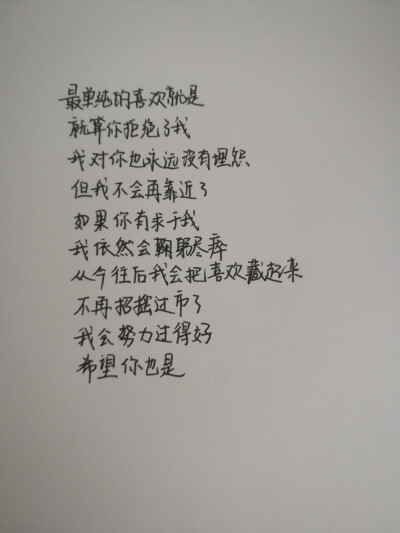 最单纯的喜欢就是
就算你拒绝了我
我对你也永远没有埋怨
但我不会再靠近了
如果你有求于我
我依然会鞠躬尽瘁
从今往后我会把喜欢藏起来
不再招摇过市了
我会努力过得好
希望你也是